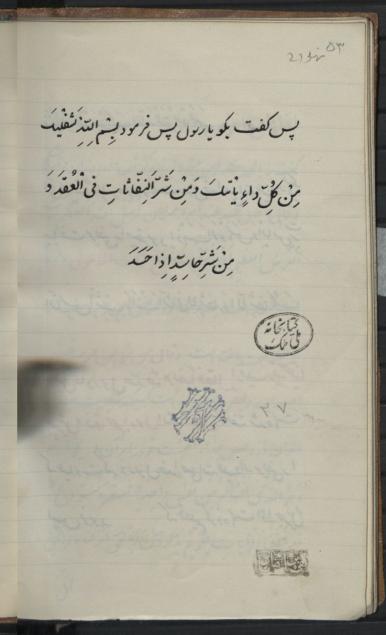 ۵۳
پس کفت بکو یا رسول پس فرمود بِسْمِ اللّهِ تَشْفیكَ
مِنْ کُلِّ داءٍ یَأتیكَ وَمِنْ شَرِّ النَّفّاثاتِ فی الْعُقَدِ وَ
مِنْ شَرِّ حاسِدٍ اِذا حَسَدَ
کتابخانه
ملی ملک
۲۷